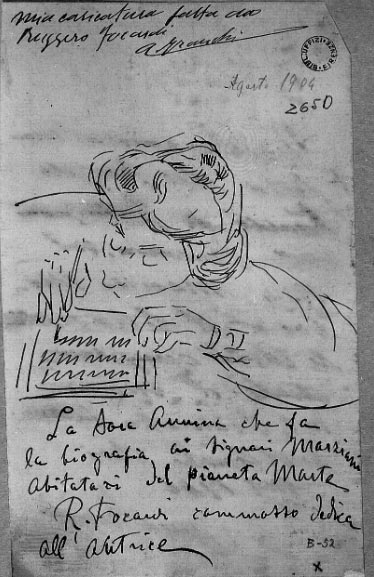 mia caricatura fatta da
Ruggero Focardi
A. Franchi
GALLERIA UFFIZI FIRENZE
Agosto 1904
2650
La Sora Annina che fa
la biografia ai Signori Marziani
abitatori del pianeta Marte
R. Focardi commosso dedica
all'autrice
B-52
x